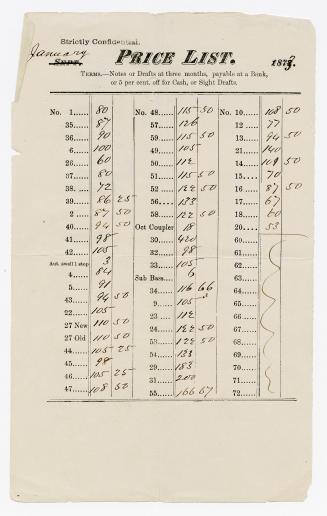 Strictly Confidential.
January
Sept. PRICE LIST. 187
TERMS.—Notes or Drafts at three months, payable at a Bank,
or 5 per cent. off for Cash, or Sight Drafts.
No. 1...... 80
35...... 87
36...... 90
6...... 100
26...... 60
37...... 80
38...... 72
39...... 86 25
2...... 87 50
40...... 94 50
41...... 98
42...... 105
Ack. swell 1 stop 3
4...... 84
5...... 91
43...... 94 50
22...... 105
27 New 110 50
27 Old 110 50
44...... 105 25
45...... 98
46...... 105 25
47...... 108 50
No. 48...... 115 50
57...... 126
59...... 115 50
49...... 105
50...... 112
51...... 115 50
52...... 122 50
56...... 133
58...... 122 50
Oct Coupler 18
30...... 420
32...... 98
33...... 105
Sub Bass... 6
34...... 116 66
9...... 105
23...... 112
24...... 122 50
53...... 122 50
54...... 133
29...... 183
31...... 200
55...... 166 67
No. 10...... 108 50
12...... 77
13...... 94 50
21...... 140
14...... 101 50
15...... 70
16...... 87 50
17...... 67
18...... 60
20...... 53
60......
61......
62......
63......
64......
65......
66......
67......
68......
69......
70......
71......
72......